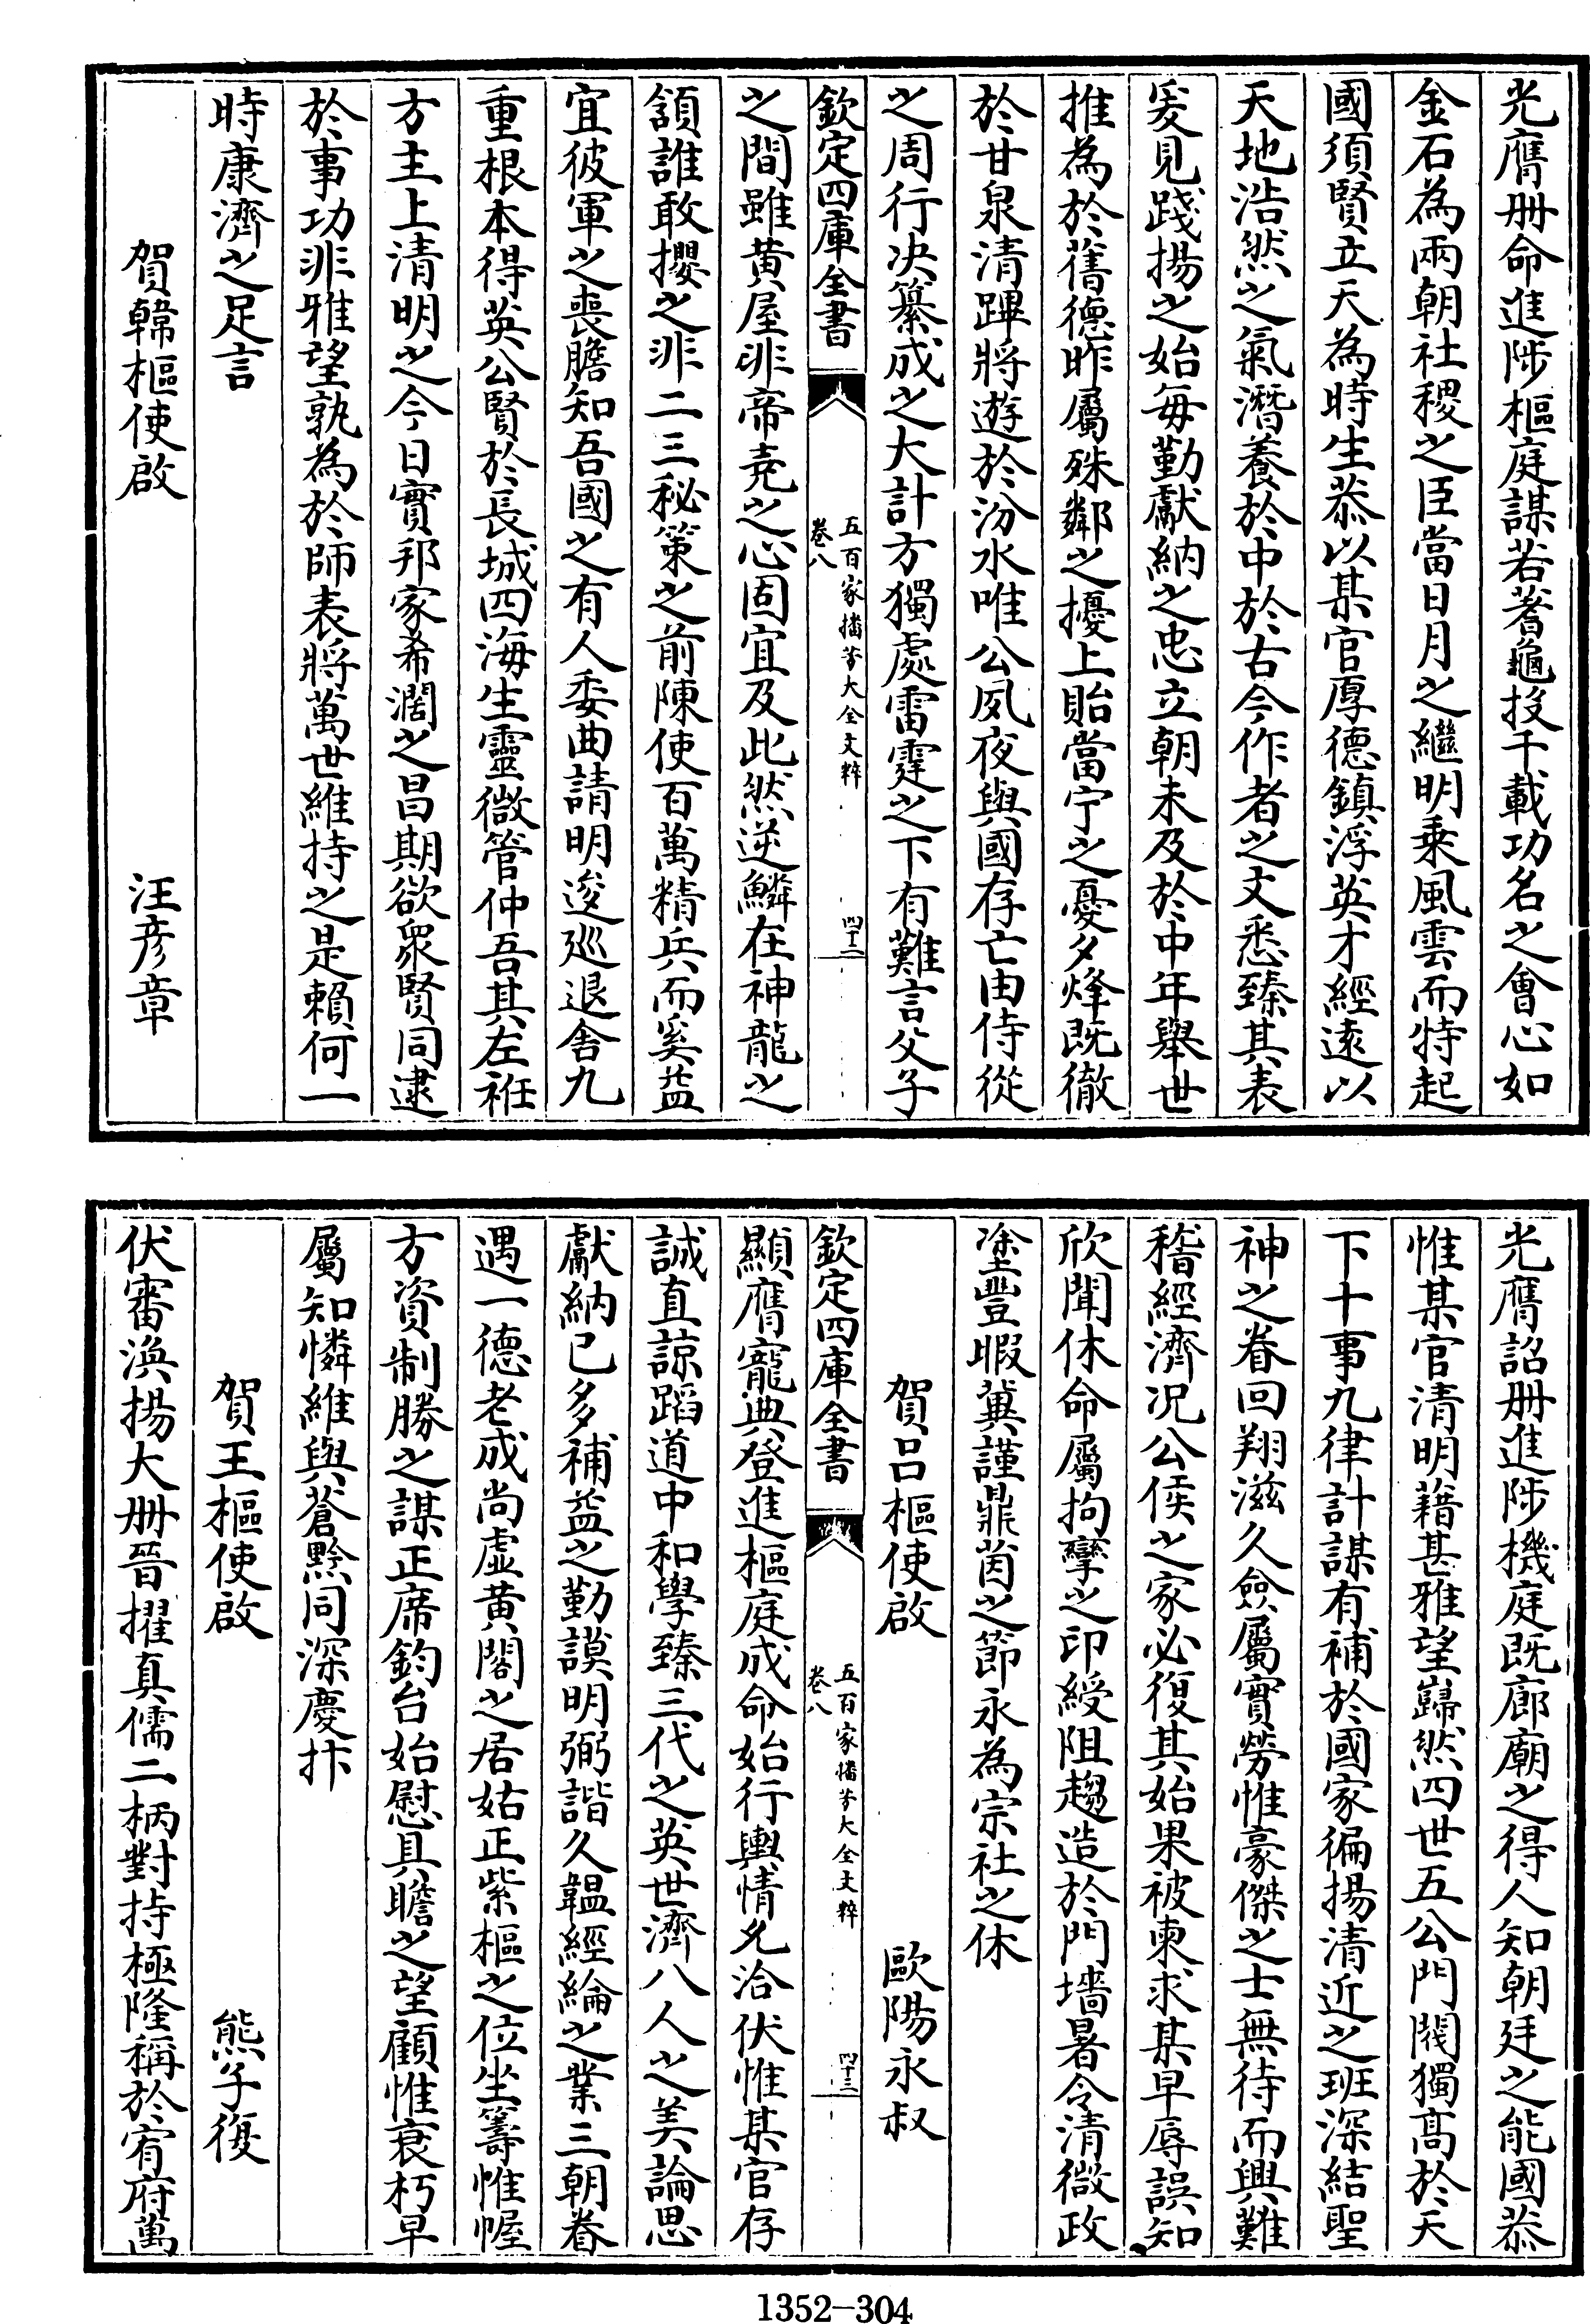 光膺册命進陟樞庭謀若蓍龜投千載功名之會心如
金石為兩朝社稷之臣當日月之繼明乗風雲而特起
國須賢立天為時生恭以某官厚德鎮浮英才經遠以
天地浩然之氣潛養於中於古今作者之文悉臻其表
爰見踐揚之始毎勤獻納之忠立朝未及於中年舉世
推為於舊德昨屬殊鄰之擾上貽當宁之憂夕烽既徹
於甘泉清蹕將遊於汾水唯公夙夜與國存亡由侍從
之周行决纂成之大計方獨處雷霆之下有難言父子
欽定四庫全書
五百家播芳大全文粹
卷八
四十二
之間雖黄屋非帝堯之心固宜及此然逆鱗在神龍之
頷誰敢攖之非二三秘策之前陳使百萬精兵而奚益
宜彼軍之喪膽知吾國之有人委曲請明逡巡退舍九
重根本得英公賢於長城四海生靈微管仲吾其左袵
方主上清明之今日實邦家希濶之昌期欲衆賢同逮
於事功非雅望孰為於師表將萬世維持之是賴何一
時康濟之足言
賀韓樞使啟 汪彦章
光膺詔册進陟機庭既廊廟之得人知朝廷之能國恭
惟某官清明藉甚雅望巋然四世五公門閥獨髙於天
下十事九律計謀有補於國家徧揚清近之班深結聖
神之眷回翔滋久僉屬實勞惟豪傑之士無待而興難
稽經濟况公侯之家必復其始果被柬求某早辱誤知
欣聞休命屬拘攣之印綬阻趨造於門墻暑令清微政
塗豐暇冀謹鼎茵之節永為宗社之休
賀吕樞使啟 歐陽永叔
欽定四庫全書
五百家播芳大全文粹
卷八
四十三
顯膺寵典登進樞庭成命始行輿情允洽伏惟某官存
誠直諒蹈道中和學臻三代之英世濟八人之美論思
獻納已多補益之勤謨明弼諧久韞經綸之業三朝眷
遇一德老成尚虚黄閣之居姑正紫樞之位坐籌惟幄
方資制勝之謀正席鈞台始慰具瞻之望顧惟衰朽早
屬知憐維與蒼黔同深慶抃
賀王樞使啟 熊子復
伏審渙揚大册晉擢真儒二柄對持極隆稱於宥府萬
1352—304